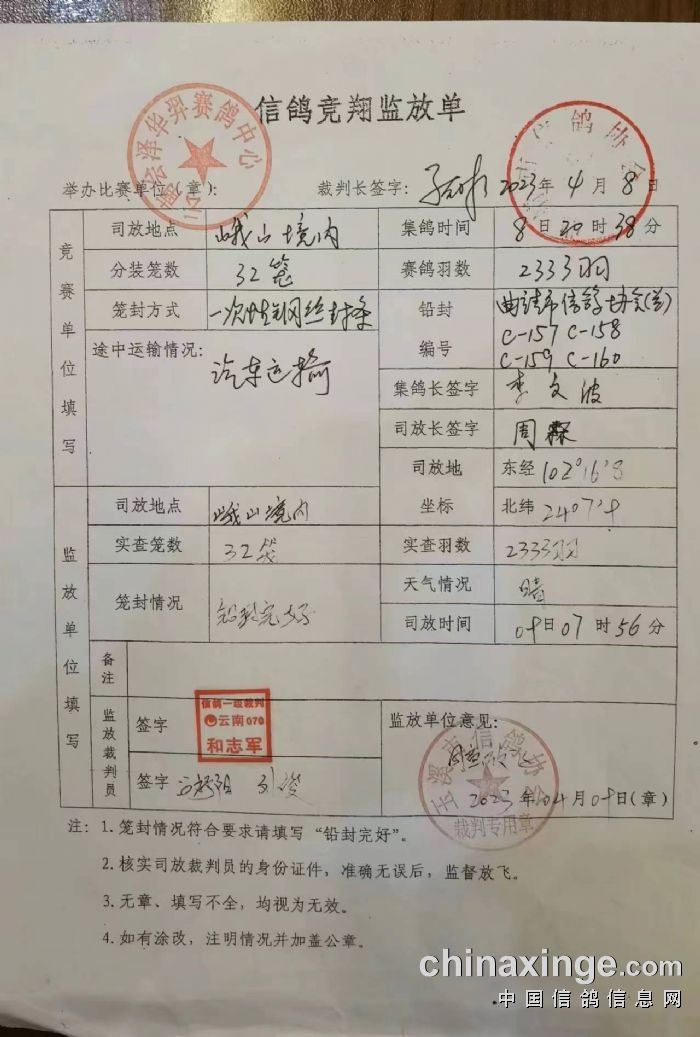 信鸽竞翔监放单
举办比赛单位(章): 裁判长签字: 2023年4月8日
竞赛单位填写
司放地点 峨山境内 集鸽时间 8日20时38分
分装笼数 32笼 赛鸽羽数 2333羽
笼封方式 一次性钢丝封条 铅封 曲靖市信鸽协会(兰)
编号 C-157 C-158
C-159 C-160
途中运输情况: 汽车运输
集鸽长签字 李文波
司放长签字 周霖
司放地 东经 102°16'8
坐标 北纬 24°07'9
监放单位填写
司放地点 峨山境内
实查笼数 32笼 实查羽数 2333羽
笼封情况 铅封完好 天气情况 晴
司放时间 09日07时56分
备注
监放裁判员
签字 信鸽一级裁判
云南070
和志军
签字
监放单位意见:
同意放飞
玉溪市信鸽协会
裁判专用章
2023年04月09日(章)
注: 1. 笼封情况符合要求请填写“铅封完好”。
2. 核实司放裁判员的身份证件，准确无误后，监督放飞。
3. 无章、填写不全，均视为无效。
4. 如有涂改，注明情况并加盖公章。
chinaxinge.com
中国信鸽信息网